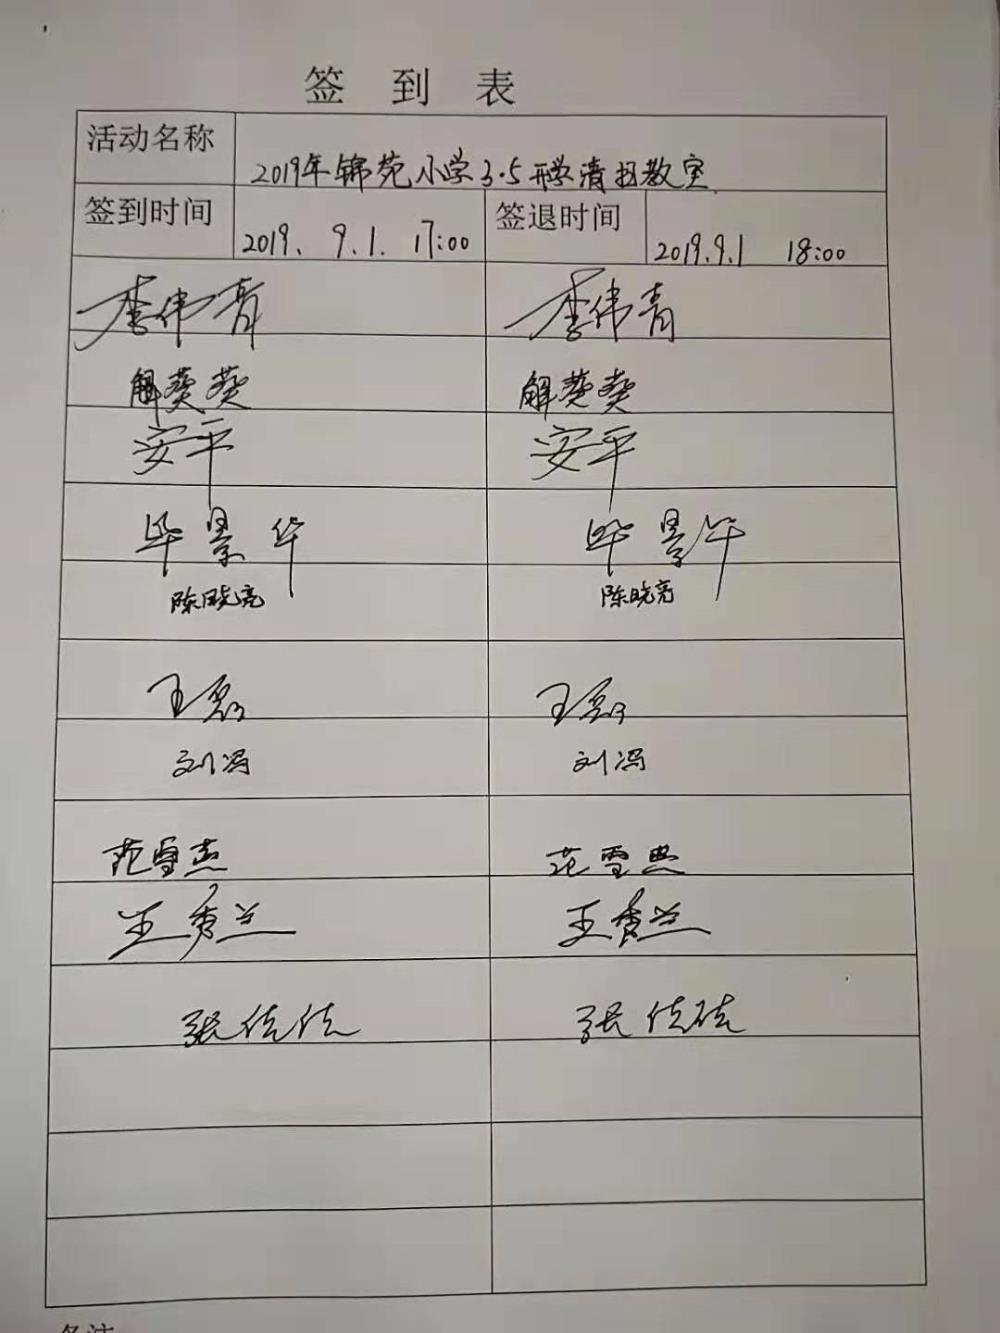 签 到 表
活动名称 2019年锦苑小学3.5开学清扫教室
签到时间 2019. 9.1. 17:00 签退时间 2019.9.1 18:00
李伟青 李伟青
解葵葵 解葵葵
安平 安平
毕景华 毕景华
陈晓亮 陈晓亮
王磊 王磊
刘冯 刘冯
范雪杰 范雪
王秀兰 王秀兰
张佳佳 张佳佳
备注